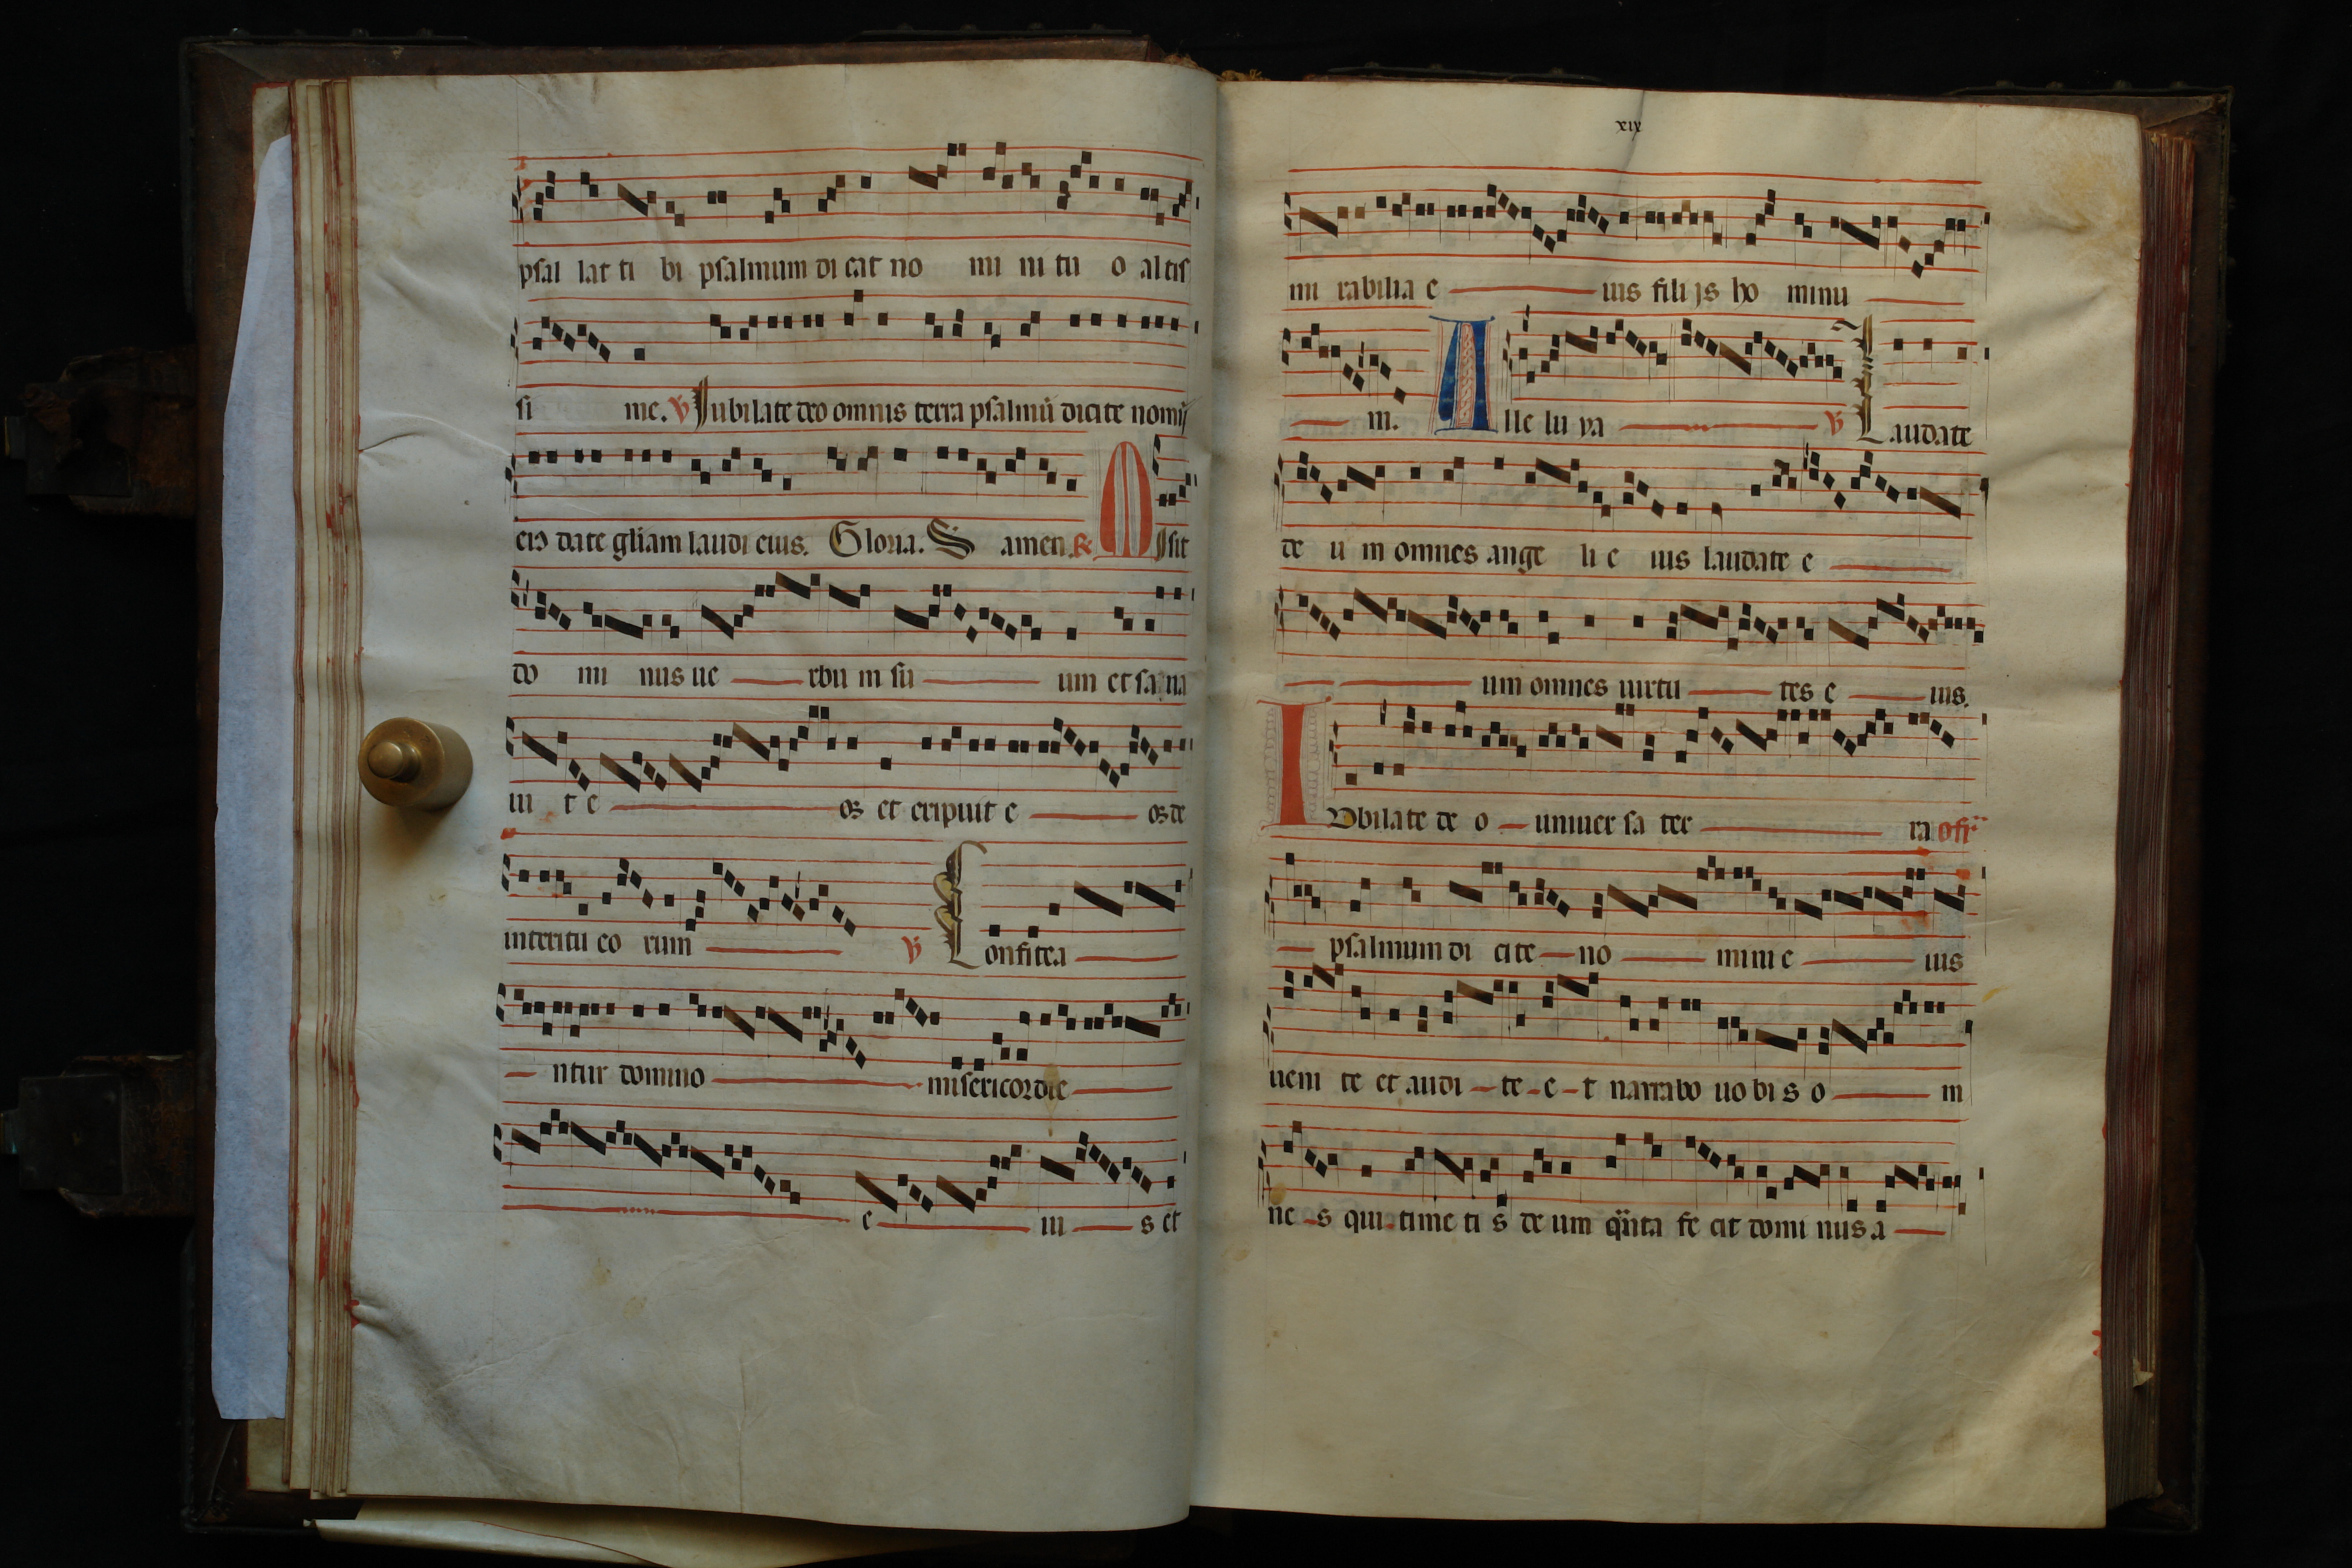 psal lat ti bi psalmum di cat no mi ni tu o altis
si me. V Iubilate deo omnis terra psalmū dicite nomī
eiꝰ date gliam laudi eius. Gloria. S amen. R Misit
do mi nus ue rbu m su um et sa na
ui t e os et eripuit e os de
interitu eo rum V Confitea
ntur domino misericordie
e iu s et
xix
mi rabilia e ius filijs ho minu
m. Alle lu ya V Laudate
de u m omnes ange li e ius laudate e
um omnes uirtu tes e ius.
Iubilate de o uniuer sa ter ra offr
psalmum di cite no mini e ius
ueni te et audi te e t narrabo uo bi s o m
ne s qui time ti s de um qūita fe cit domi nus a